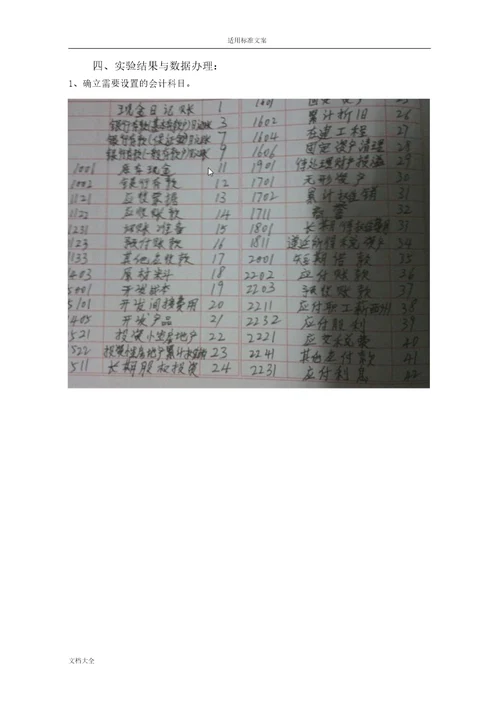 适用标准文案
四、实验结果与数据办理：
1、确立需要设置的会计科目。
现金日记账 1 1601 固定资产 25
银行存款(基本存款户)日记账 3 1602 累计折旧 26
银行存款(保证金)日记账 7 1604 在建工程 27
银行存款(一般存款户)日记账 9 1606 固定资产清理 28
1001 库存现金 11 1901 待处理财产损溢 29
1002 银行存款 12 1701 无形资产 30
1121 应收票据 13 1702 累计摊销 31
1122 应收账款 14 1711 商誉 32
1231 坏账准备 15 1801 长期待摊费用 33
1123 预付账款 16 1811 递延所得税资产 34
1133 其他应收款 17 2001 短期借款 35
1403 原材料 18 2202 应付账款 36
5001 开发成本 19 2203 预收账款 37
5101 开发间接费用 20 2211 应付职工薪酬 38
1405 开发产品 21 2232 应付股利 39
1521 投资性房地产 22 2221 应交税费 40
1522 投资性房地产累计折旧 23 2241 其他应付款 41
1511 长期股权投资 24 2231 应付利息 42
文档大全